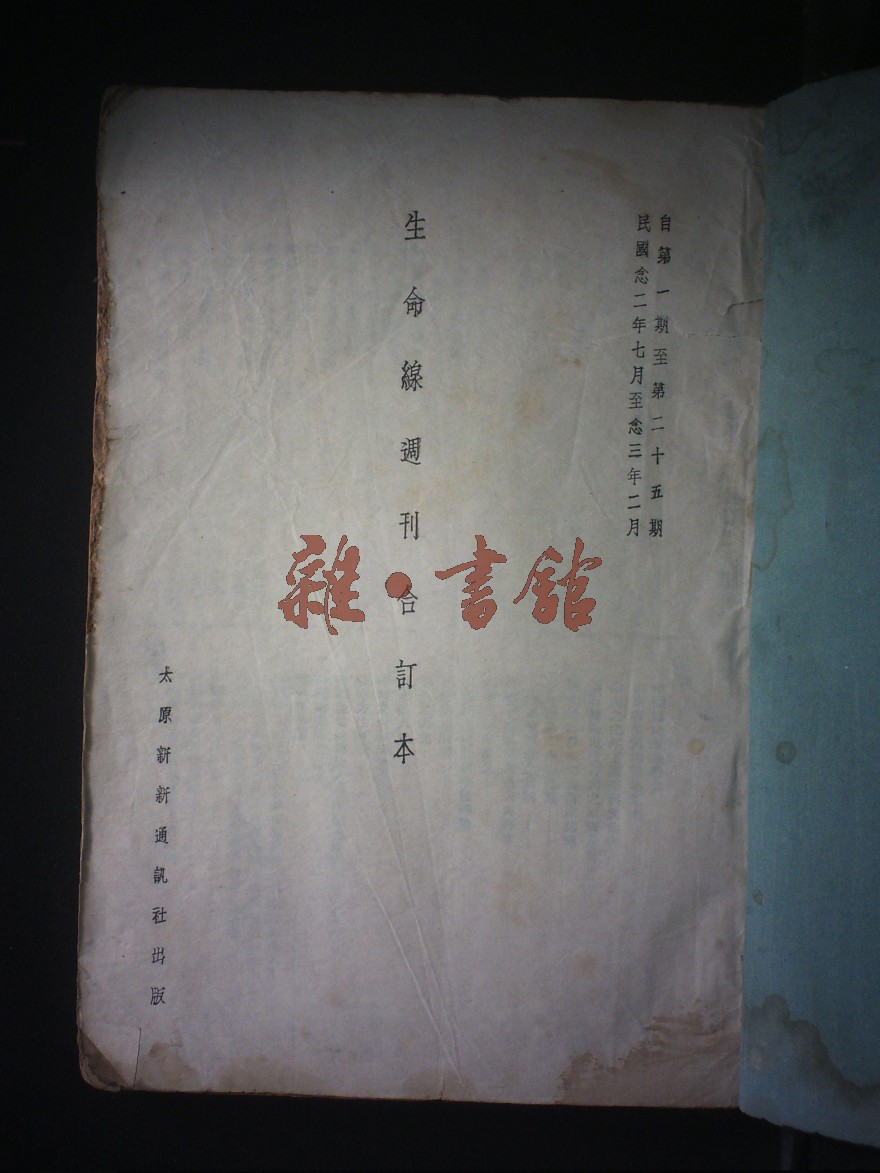 自第一期至第二十五期
民國念二年七月至念三年二月
生命線週刊合訂本
太原新新通訊社出版
雜·書館